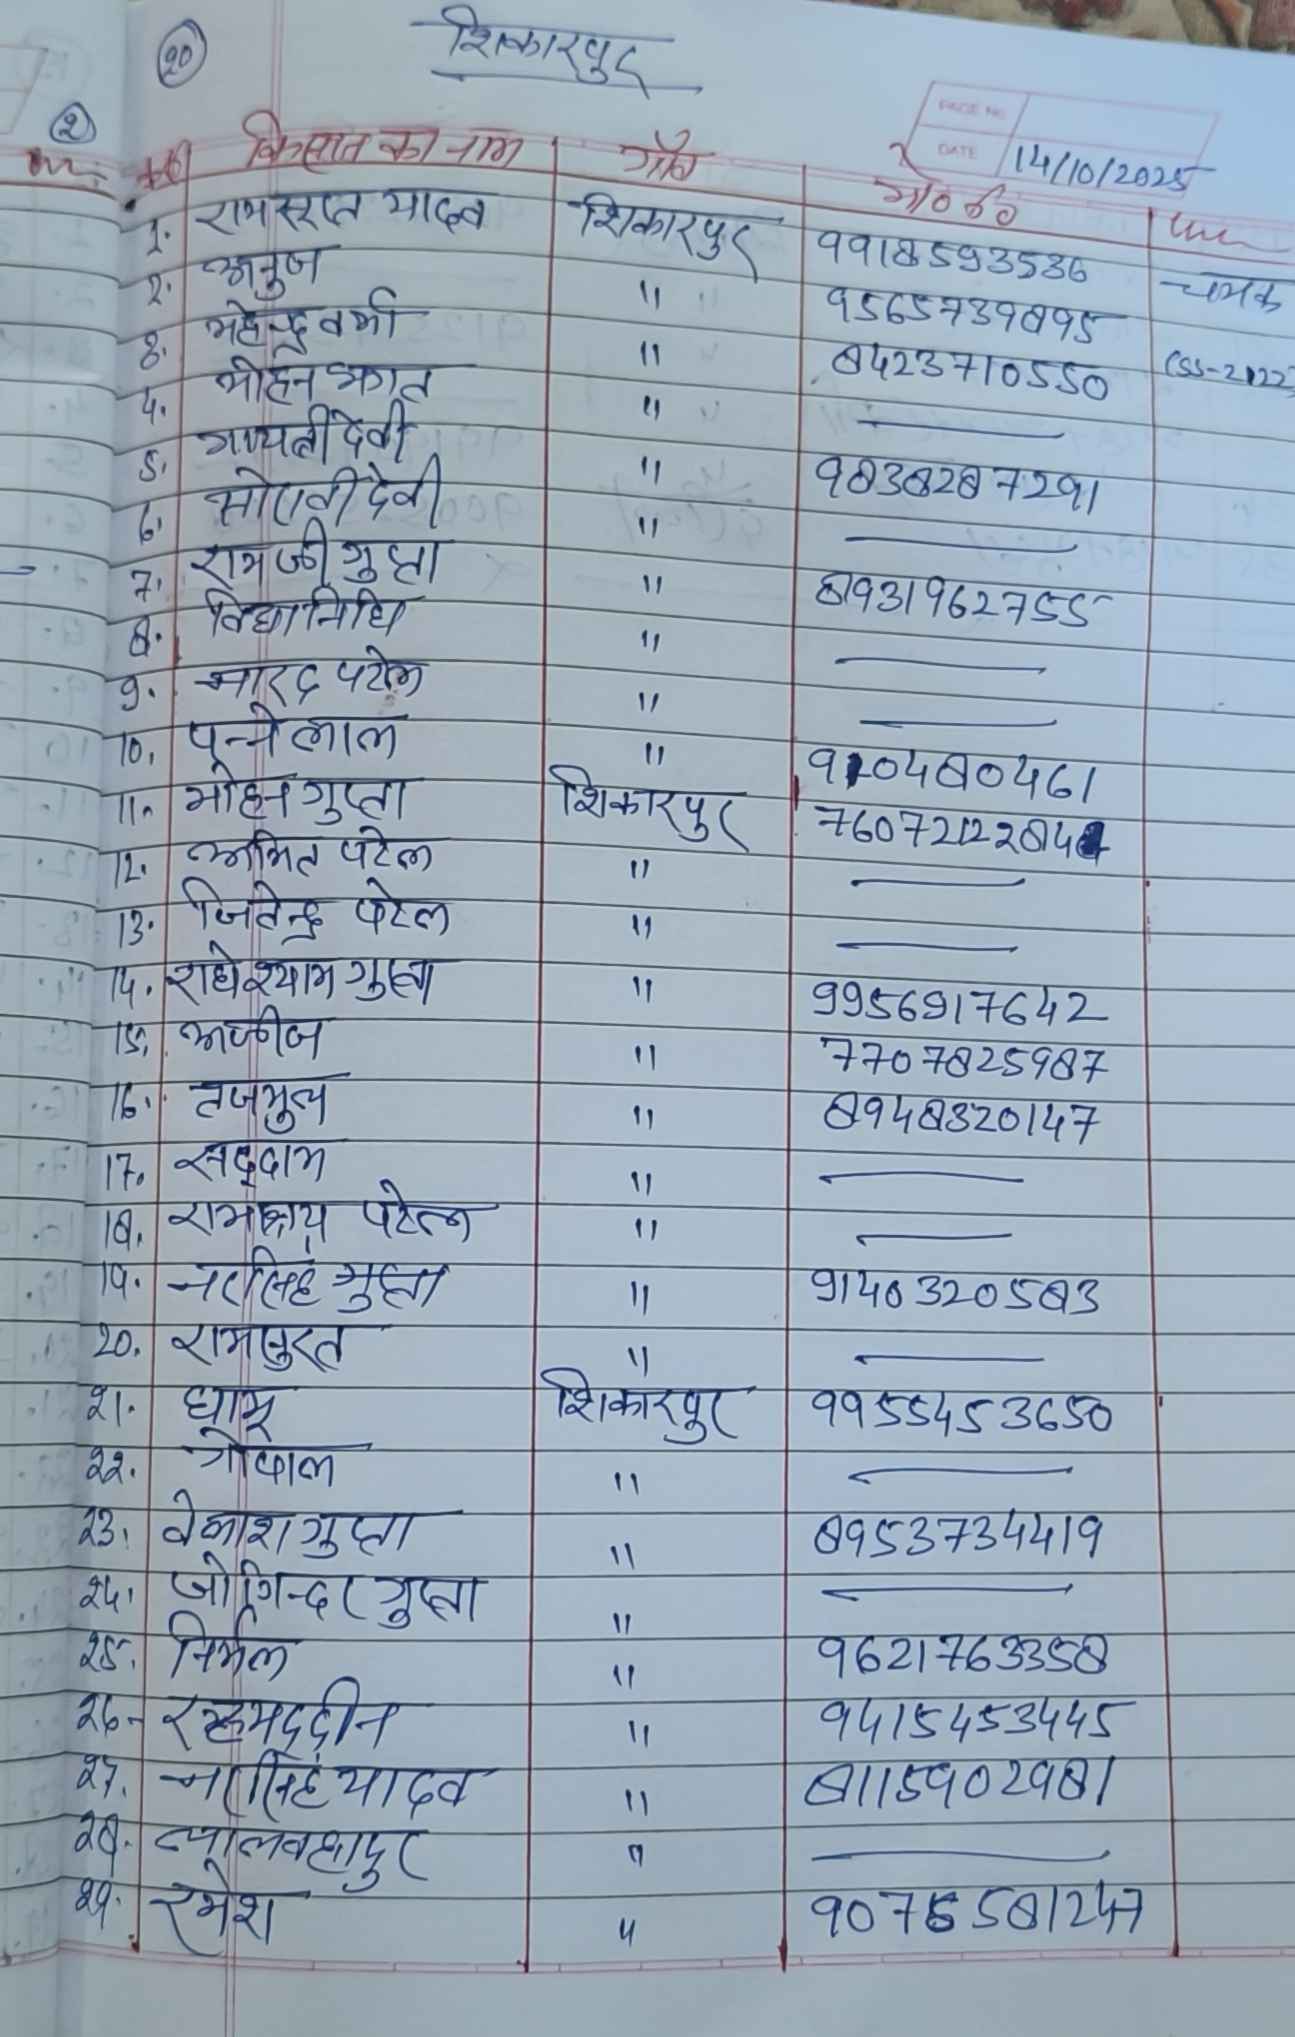 २०
शिकारपुर
२
PAGE NO.
DATE 14/10/2025
क्र० किसान का नाम गाँव मो० नं०
1. रामसूरत यादव शिकारपुर 9918593536 चमक
2. अनुज " 9565739895
3. महेन्द्र वर्मा " 8423710550 CSS-2122
4. मोहन भगत " —
5. गायत्री देवी " 9838287291
6. देवी " —
7. रामजी गुप्ता " 8931962755
8. विद्यानिधि " —
9. नारद पटेल " —
10. पून्ने लाल " 9204880461
11. मोहन गुप्ता शिकारपुर
12. अमित पटेल " —
13. जितेन्द्र पटेल " —
14. राधेश्याम गुप्ता " 9956917642
15. अजीज " 7707825987
16. तजमुल " 8948320147
17. सद्दाम " —
18. पटेल " —
19. नरसिंह गुप्ता " 9140320583
20. रामसुरत " —
21. घामू शिकारपुर 9955453650
22. गोपाल " —
23. वेकाश गुप्ता " 8953734419
24. जोगिन्दर गुप्ता " —
25. निर्मल " 9621763358
26. " 9415453445
27. नरसिंह यादव " 8115902981
28. लालबहादुर " —
29. रमेश " 9076581247